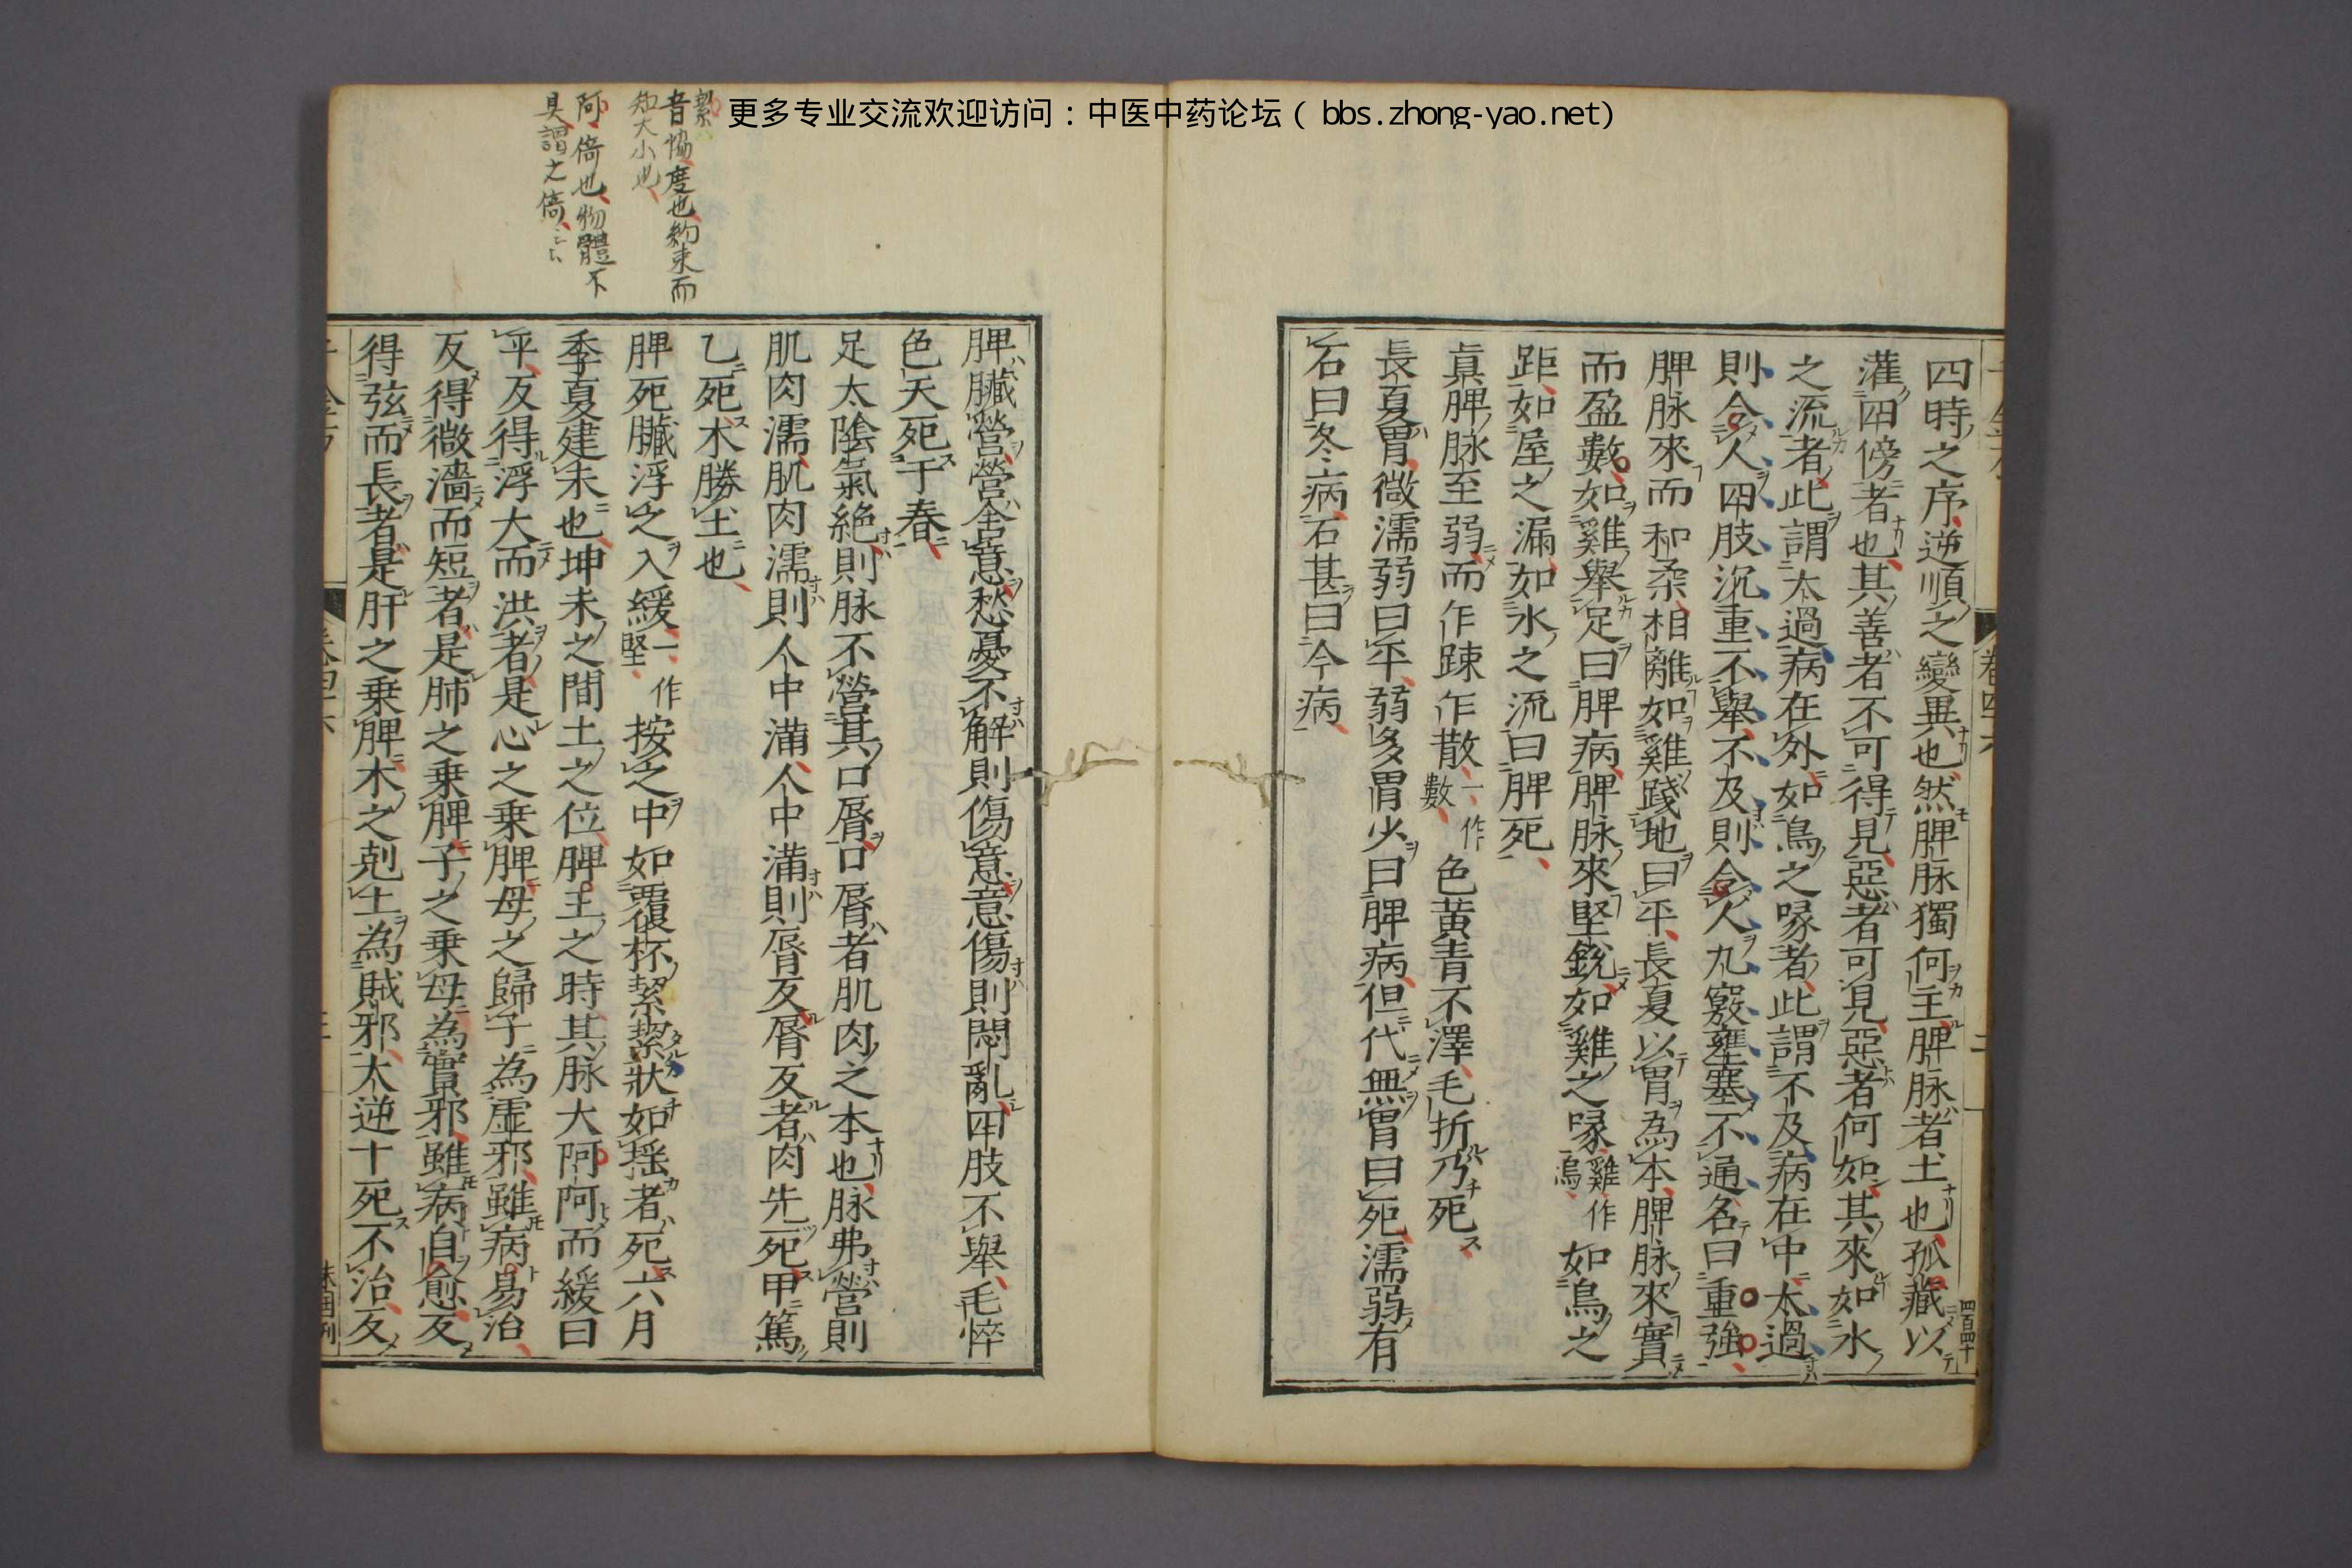 更多专业交流欢迎访问：中医中药论坛（bbs.zhong-yao.net）
四時之序逆順之變異也然脾脉獨何主脾脉者土也孤藏以
灌四傍者也其善者不可得見惡者可見惡者何如其來如水
之流者此謂太過病在外如鳥之喙者此謂不及病在中太過
則令人四肢沉重不舉不及則令人九竅壅塞不通名曰重強
脾脉來而和柔相離如雞踐地曰平長夏以胃為本脾脉來實
而盈數如雞舉足曰脾病脾脉來堅銳如雞之喙雞作鳥如鳥之
距如屋之漏如水之流曰脾死
真脾脉至弱而乍踈乍散一作數色黃青不澤毛折乃死
長夏胃微濡弱曰平弱多胃少曰脾病但代無胃曰死濡弱有
石曰冬病石甚曰今病
卷四十六
四百四十
脾臟營營舍意愁憂不解則傷意意傷則悶亂四肢不舉毛悴
色夭死于春
足太陰氣絶則脉不營其口脣口脣者肌肉之本也脉弗營則
肌肉濡肌肉濡則人中滿人中滿則脣反脣反者肉先死甲篤
乙死木勝土也
脾死臟浮之入緩一作堅按之中如覆杯絜絜狀如揺者死六月
季夏建未也坤未之間土之位脾王之時其脉大阿阿而緩曰
平反得浮大而洪者是心之乗脾母之歸子為虛邪雖病易治
反得微濇而短者是肺之乗脾子之乗母為實邪雖病自愈反
得弦而長者是肝之乗脾木之剋土為賊邪大逆十死不治反
絜
音㤥度也約束而
知大小也
阿倚也物體不
具謂之倚云云